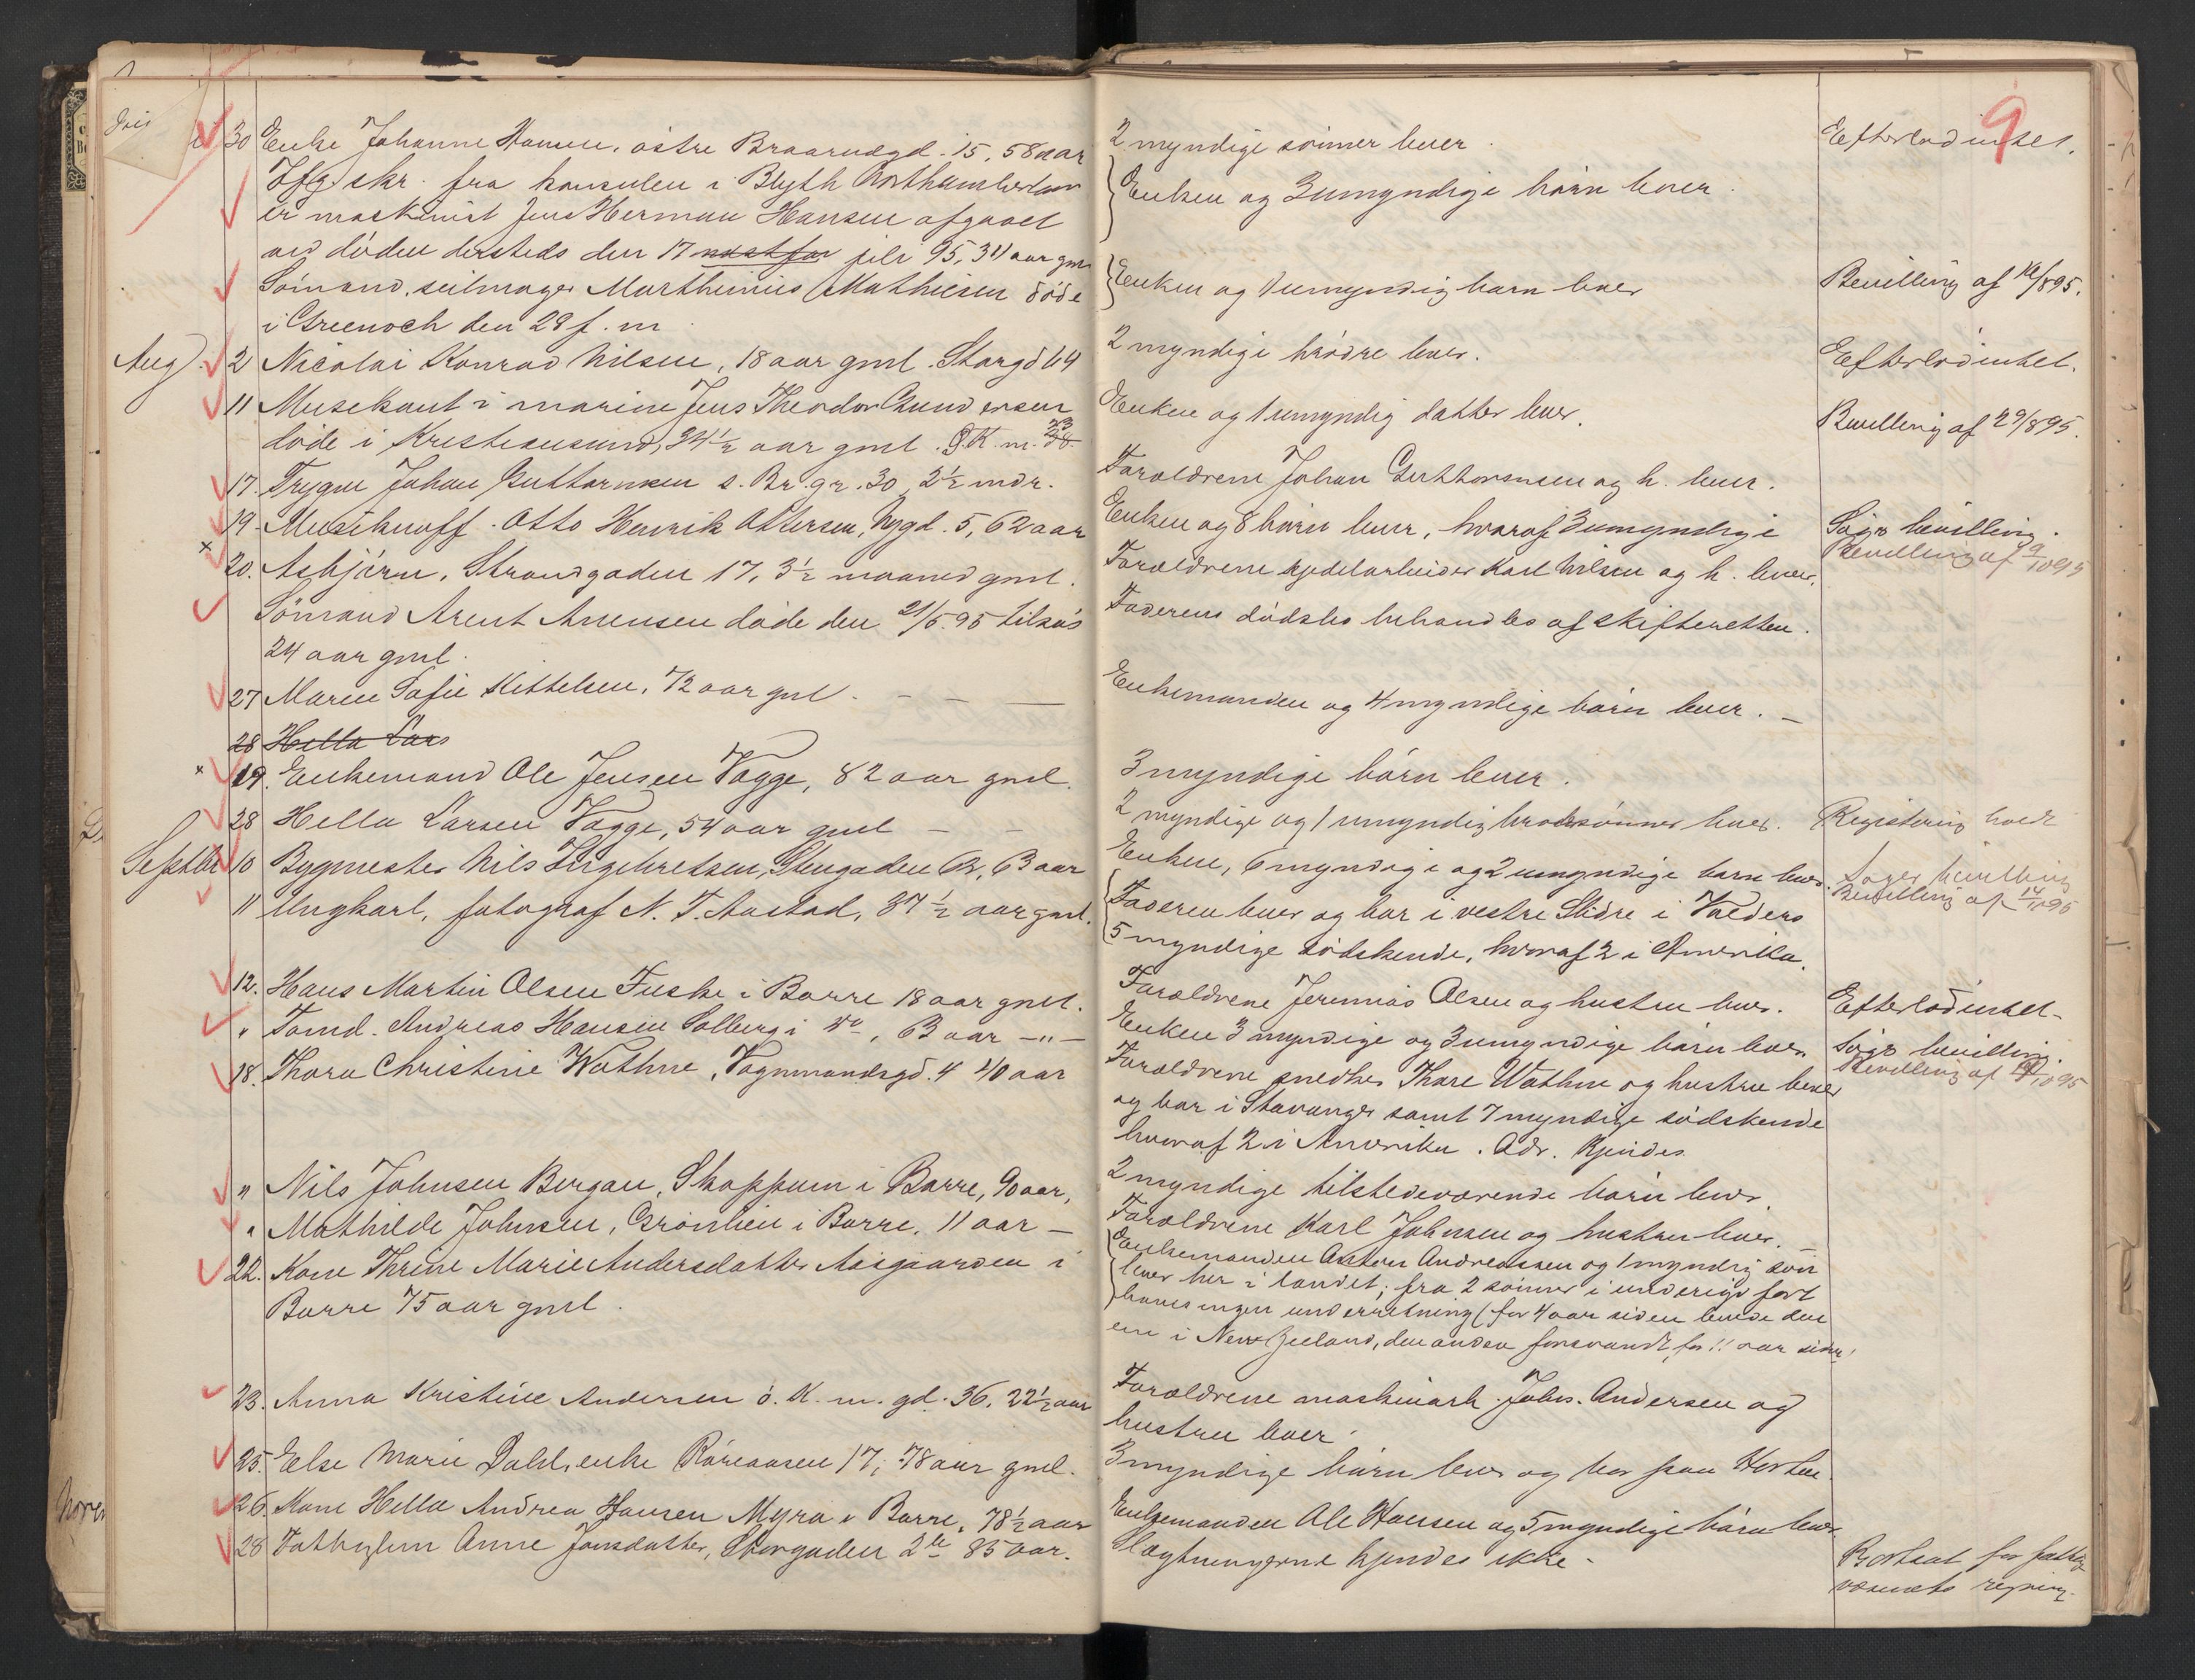 9
30 Enke Johanne Hansen, østre Braarudgd. 15, 58 aar
2 myndige sønner lever.
Efterlod intet.
Ifg. skr. fra konsulen i Blyth Northumberland
er maskinist Jens Herman Hansen afgaaet
ved døden dersteds den 17 juli 95, 34 aar gml.
Enken og 3 umyndige børn lever.
Sømand, seilmager Marthinius Mathiesen døde
i Greenock den 29 f. m.
Enken og 1 umyndig barn lever
Bevilling af 16/8 95.
Aug. 2 Nicolai Konrad Nilsen, 18 aar gml. Storgd 64
2 myndige brødre lever.
Efterlod intet.
11 Musikant i marinen Jens Theodor Gundersen
døde i Kristiansund, 34½ aar gml. Ø.K.m. 23
Enken og 1 umyndig datter lever.
Bevilling af 29/8 95.
17. Trygve Johan Guttormsen s. Br. gr. 30, 2½ mdr.
Forældrene Johan Guttormsen og h. lever.
19. Musikuoff. Otto Henrik Ottersen, Nygd. 5, 62 aar
Enken og 8 børn lever, hvoraf 3 umyndige
Søgt bevilling.
Bevilling af 9/10 95
20. Asbjørn, Strandgaden 17, 3½ maaned gml.
Forældrene kjedelarbeider Karl Nilsen og h. lever.
Sømand Arent Arensen døde den 21/5 95 tilsøs
24 aar gml.
Faderens dødsbo behandles af skifteretten.
27 Maren Sofie Kittelsen, 72 aar gml. - - -
Enkemanden og 4 myndige børn lever. -
28 Hella Lars
19. Enkemand Ole Jensen Vagge, 82 aar gml.
3 myndige børn lever.
28 Hella Larsen Vagge, 54 aar gml - -
2 myndige og 1 umyndig brodersønner lever.
Registrering holdt
Septbr 10 Bygmester Nils Ingebretsen, Stengaden 62, 63 aar
Enken, 6 myndige og 2 umyndige børn lever.
Søger bevilling
Bevilling af 14/10 95
11 Ungkarl, fotograf N. T. Aastad, 37½ aar gml.
Faderen lever og bor i vestre Slidre i Valders
5 myndige sødskende, hvoraf 2 i Amerika.
12. Hans Martin Olsen Fuske i Borre 18 aar gml.
Forældrene Jeremias Olsen og hustru lever.
Efterlod intet -
" Tømd. Andreas Hansen Solberg i do, 63 aar -"-
Enken 3 myndige og 3 umyndige børn lever
Søgt bevilling.
18. Thora Christine Wathne, Vognmandsgd. 4 40 aar
Forældrene snedker Thore Wathne og hustru lever
og bor i Stavanger samt 7 myndige sødskende
hvoraf 2 i Amerika. Adr. kjendes
" Nils Johnsen Bergan, Skoppum i Borre, 90 aar,
2 myndige tilstedeværende børn lever.
" Mathilde Johnsen, Grønlien i Borre, 11 aar -
Forældrene Karl Johnsen og hustru lever. -
22. Kone Thrine Marie Andersdatter Aasgaarden i
Borre 75 aar gml.
Enkemanden Anton Andreassen og 1 myndig søn
lever her i landet; fra 2 sønner i udenrigs fart
haves ingen underretning (for 4 aar siden levede den
ene i New Zeeland, den anden forsvandt for 11 aar siden)
23. Anna Kristine Andersen ø. K. m. gd. 36, 22½ aar
Forældrene maskinarb. Johs. Andersen og
hustru lever.
25. Else Marie Dahl, enke Røreaasen 17, 78 aar gml.
3 myndige børn lever og bor paa Horten
26. Kone Hella Andrea Hansen Myra i Borre, 78½ aar
Enkemanden Ole Hansen og 5 myndige børn lever
28 Fattiglem Anne Jonsdatter, Storgaden 2 85 aar.
Slægtningerne kjendes ikke -
Bortsat for fattig-
væsenets regning.